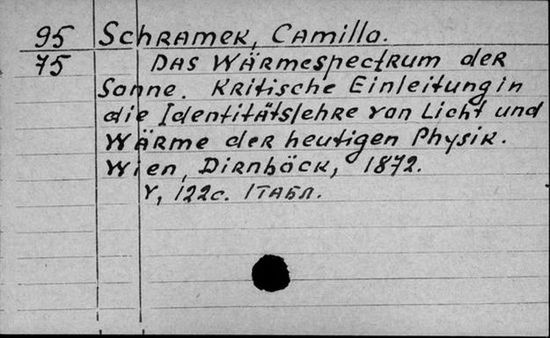 95 Schramek, Camillo.
75 Das Wärmespectrum der
Sonne. Kritische Einleitung in
die Identitätslehre von Licht und
Wärme der heutigen Physik.
Wien, Dirnböck, 1872.
V, 122с. 1 табл.